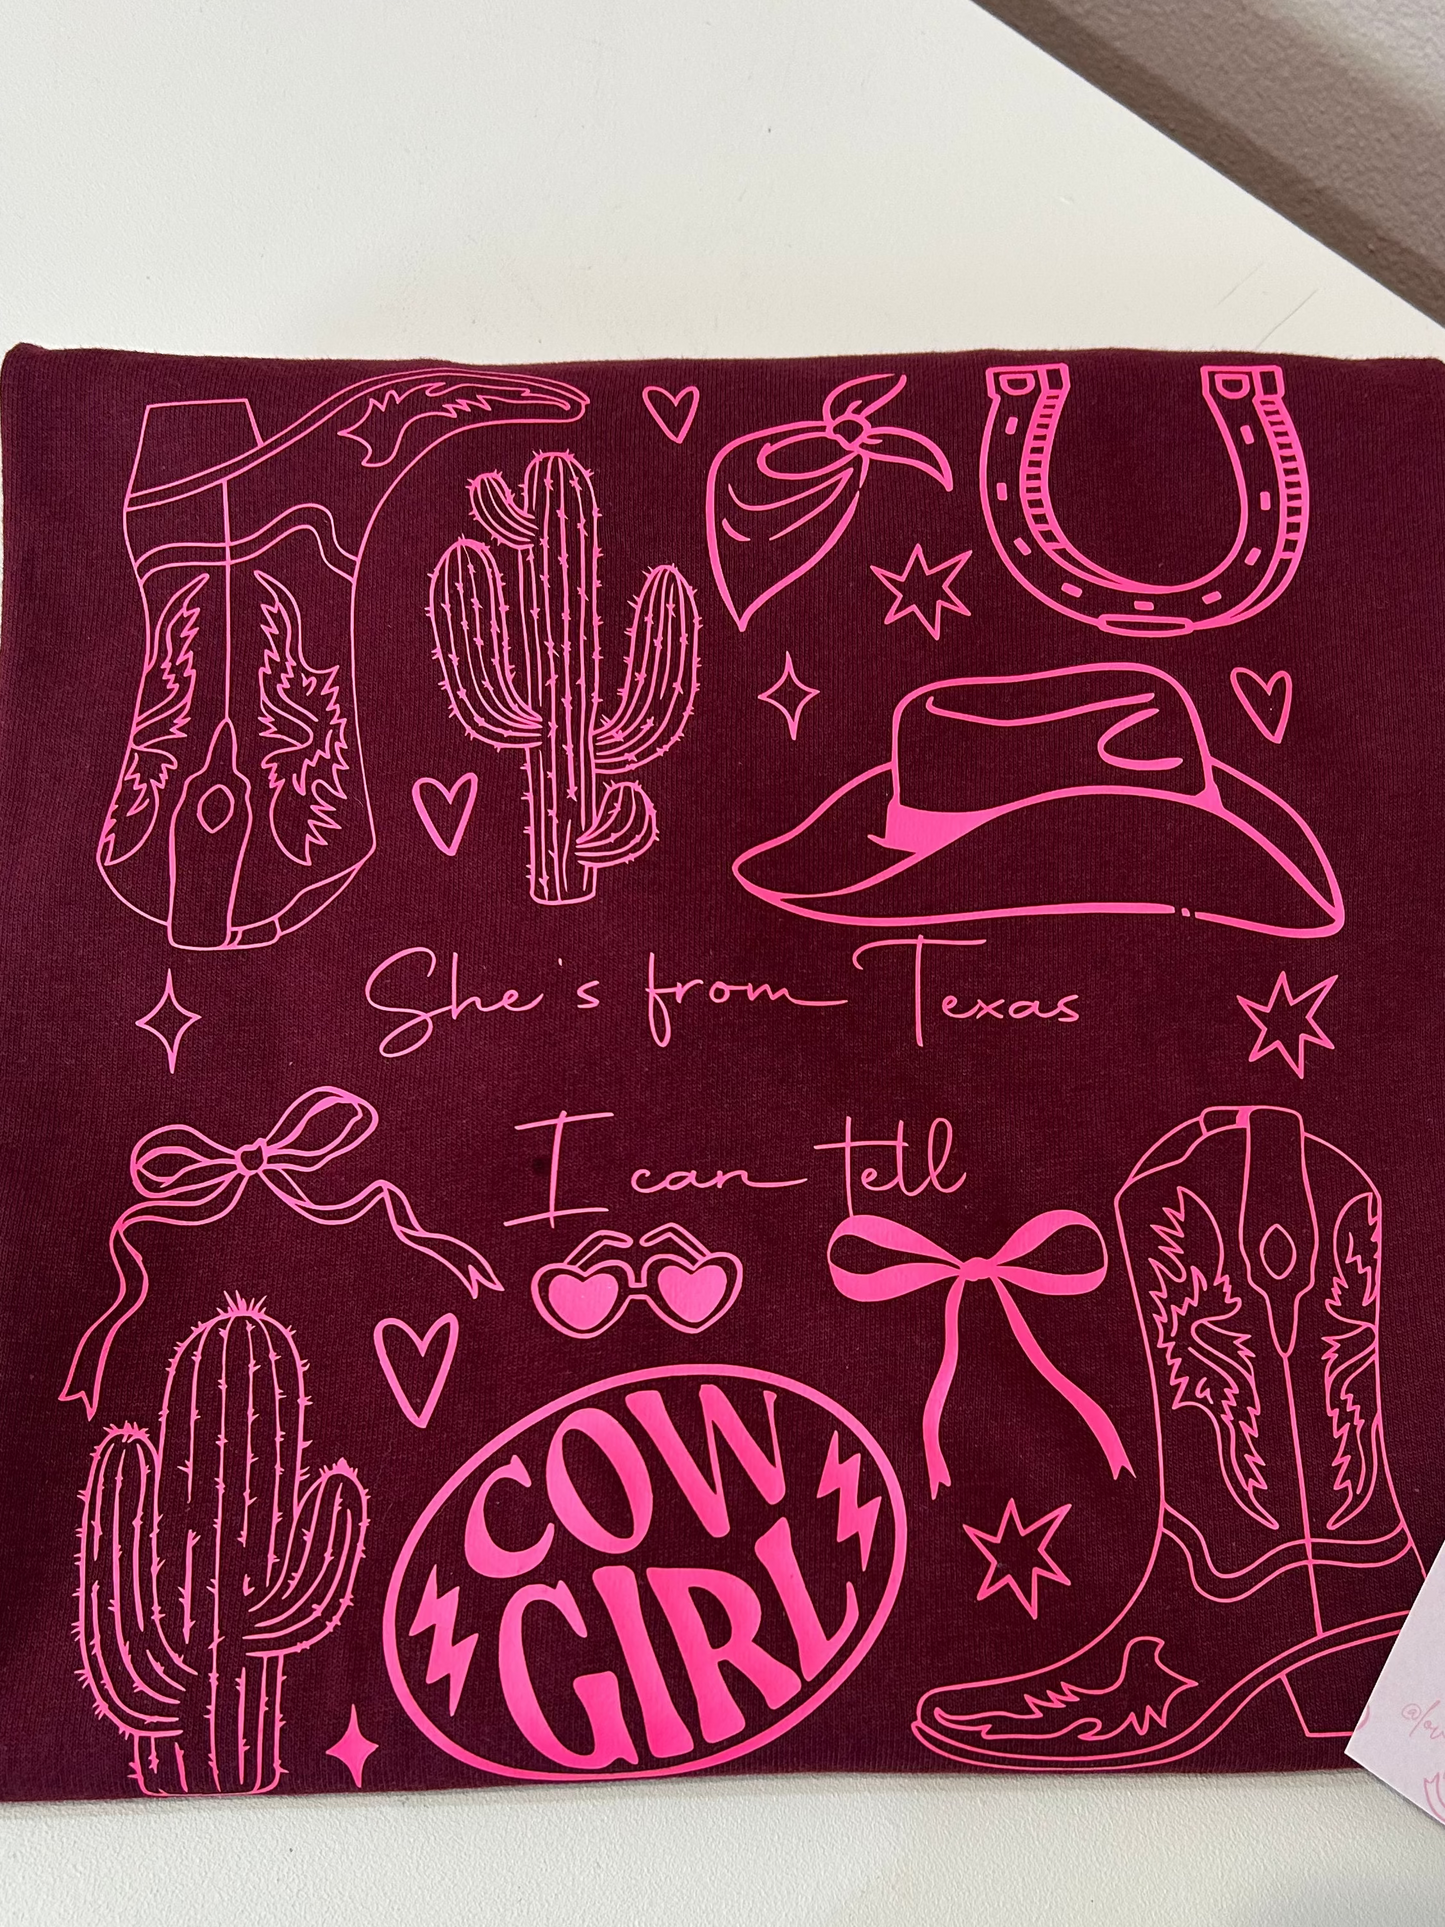 She's from Texas
I can tell
COW
GIRL